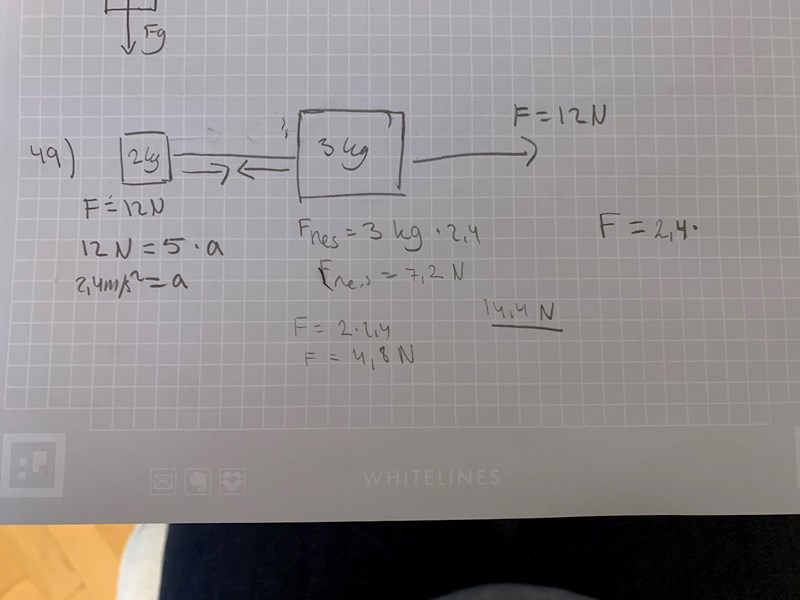 Fg
49)
2kg
3 kg
F = 12N
F = 12N
12 N = 5 · a
2,4m/s² = a
Fres = 3 kg · 2,4
Fres = 7,2 N
F = 2,4·
F = 2·2,4
F = 4,8 N
14,4 N
WHITELINES